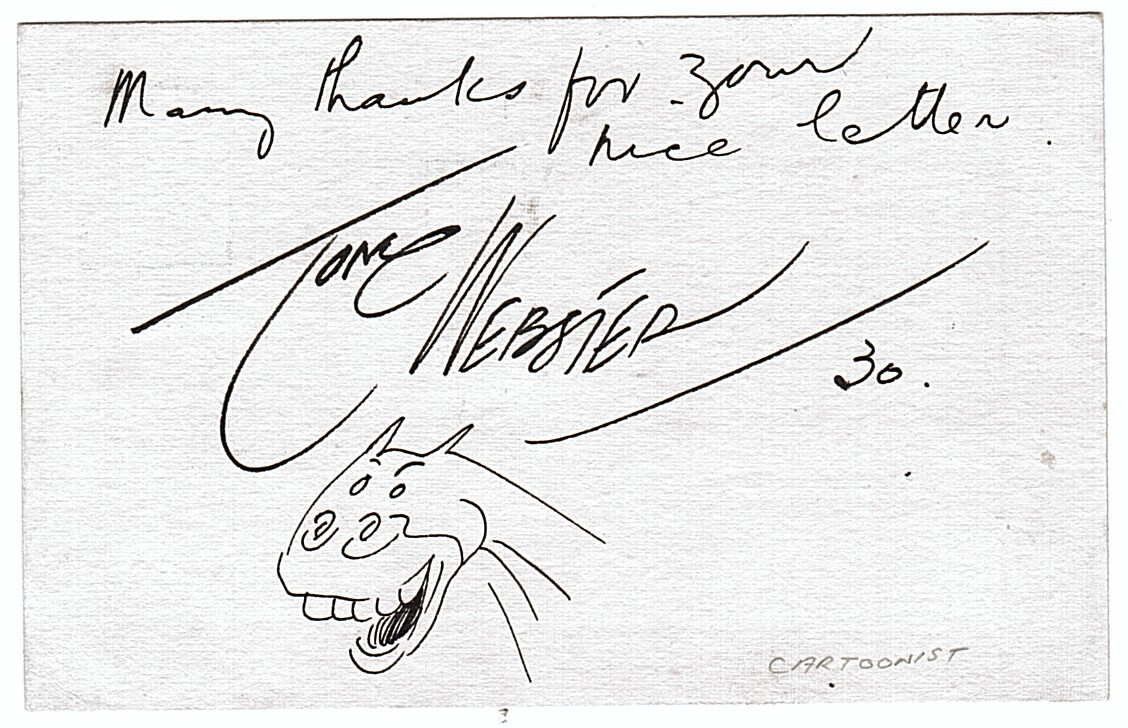 Many thanks for your
nice letter.
TOM WEBSTER
30.
CARTOONIST